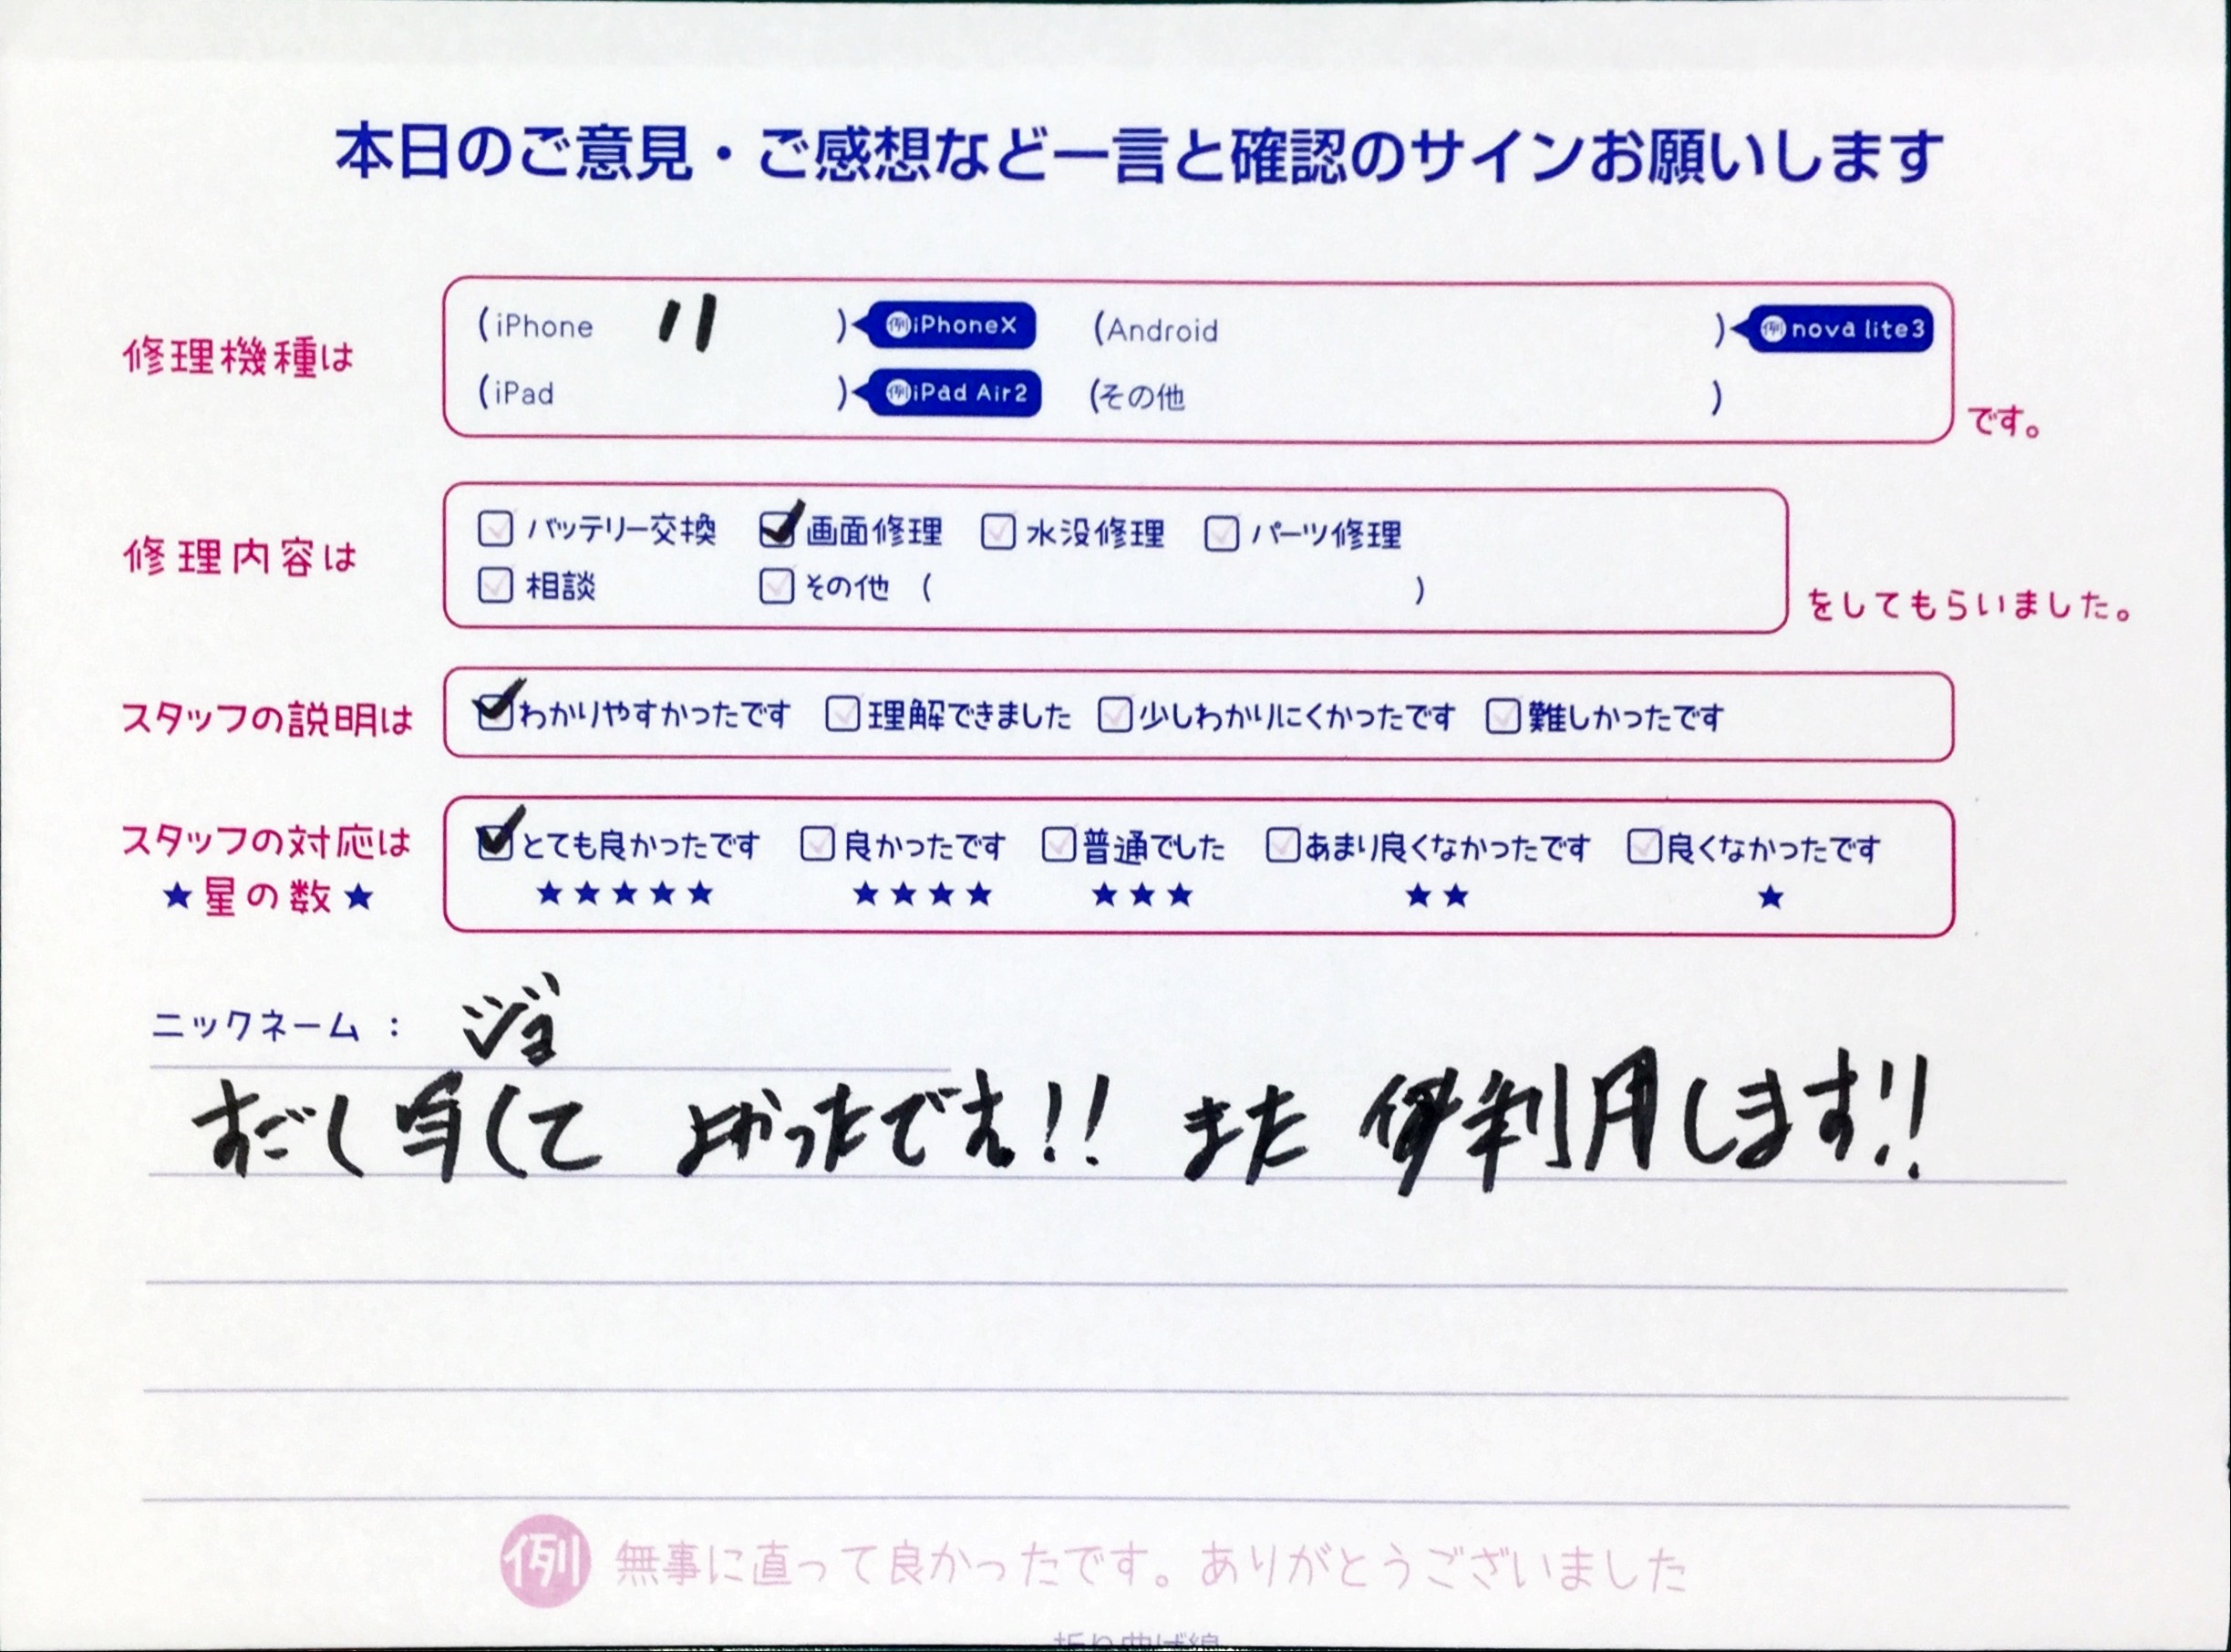 本日のご意見・ご感想など一言と確認のサインお願いします
修理機種は (iPhone 11 ) 例iPhoneX (Android ) 例nova lite3
(iPad ) 例iPad Air2 (その他 ) です。
修理内容は バッテリー交換 画面修理 水没修理 パーツ修理
相談 その他 ( ) をしてもらいました。
スタッフの説明は わかりやすかったです 理解できました 少しわかりにくかったです 難しかったです
スタッフの対応は とても良かったです 良かったです 普通でした あまり良くなかったです 良くなかったです
★星の数★ ★★★★★ ★★★★ ★★★ ★★ ★
ニックネーム : ジョ
すごし くて よかったです!! また 利用します!!
例 無事に直って良かったです。ありがとうございました
折り曲げ線